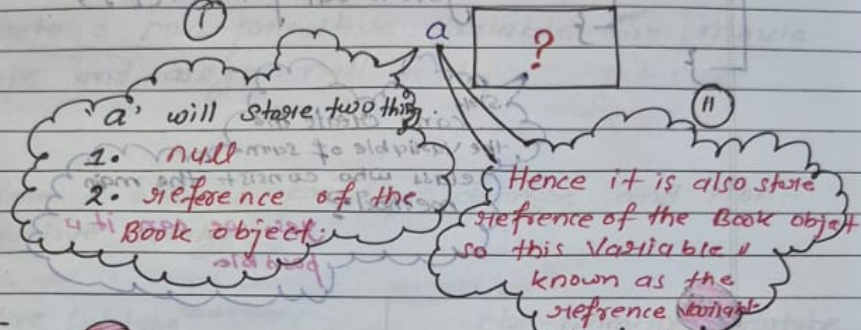 I
a
?
'a' will store two thing
1. null
2. reference of the
Book object.
II
Hence it is also store
refrence of the Book object
so this Variable "
known as the
refrence Variable